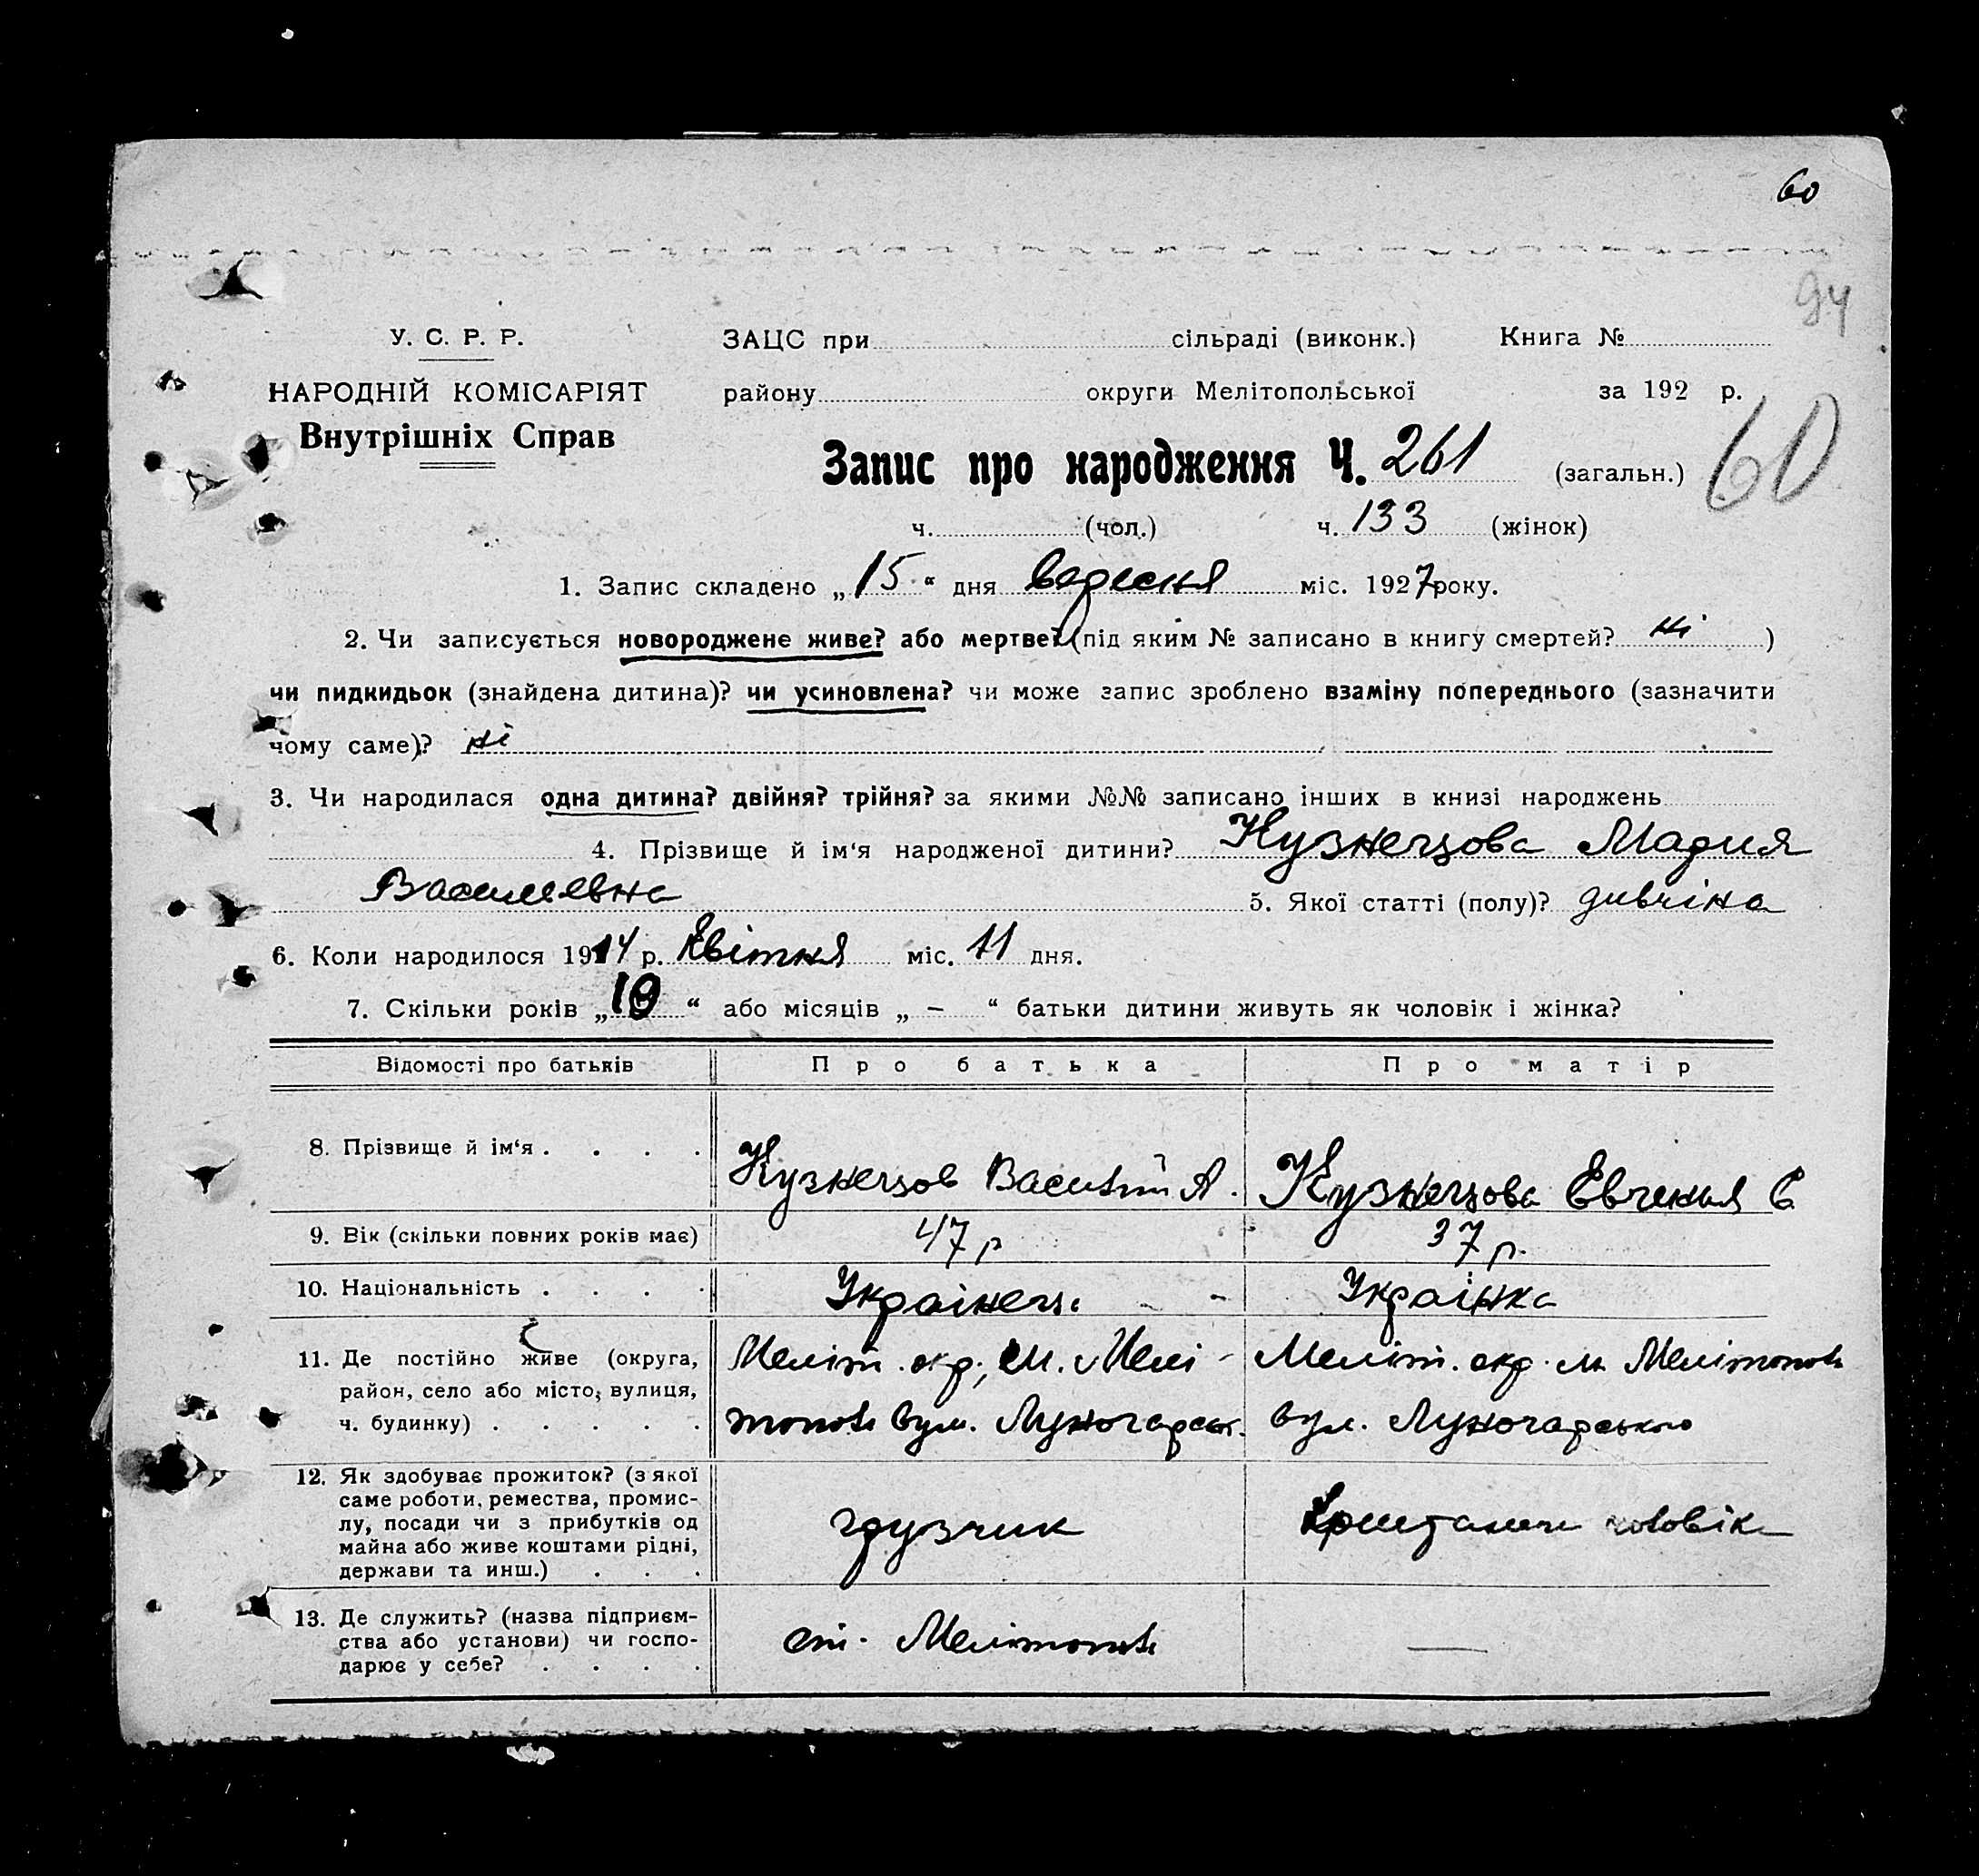 60
94
У. С. Р. Р.
ЗАЦС при сільраді (виконк.) Книга №
НАРОДНІЙ КОМІСАРІЯТ
району округи Мелітопольської за 192 р.
Внутрішніх Справ
60
Запис про народження Ч. 261 (загальн.)
ч. (чол.) ч. 133 (жінок)
1. Запис складено „15“ дня вересня міс. 1927 року.
2. Чи записується новороджене живе? або мертве? (під яким № записано в книгу смертей? ні )
чи пидкидьок (знайдена дитина)? чи усиновлена? чи може запис зроблено взаміну попереднього (зазначити
чому саме)? ні
3. Чи народилася одна дитина? двійня? трійня? за якими №№ записано інших в книзі народжень
4. Прізвище й ім‘я народженої дитини? Кузнецова Мария
Васильевна 5. Якої статті (полу)? дивчіна
6. Коли народилося 1914 р. Квітня міс. 11 дня.
7. Скільки років „19“ або місяців „ – “ батьки дитини живуть як чоловік і жінка?
Відомості про батьків Про батька Про матір
8. Прізвище й ім‘я . . . . Кузнецов Василий А. Кузнецова Евгенья Е
9. Вік (скільки повних років має) 47 р 37 р.
10. Національність . . . . Українець - - Українка
11. Де постійно живе (округа, Меліт. окр., м. Мелі- Меліт. окр. м. Мелітополь
район, село або місто, вулиця,
ч. будинку) . . . . . тополь вул. Луночарськ. вул. Луночарського
12. Як здобуває прожиток? (з якої
саме роботи, ремества, промис-
лу, посади чи з прибутків од грузчик чоловіка
майна або живе коштами рідні,
держави та инш.) . . .
13. Де служить? (назва підприєм-
ства або установи) чи госпо- ст. Мелітополь —
дарює у себе? . . . .